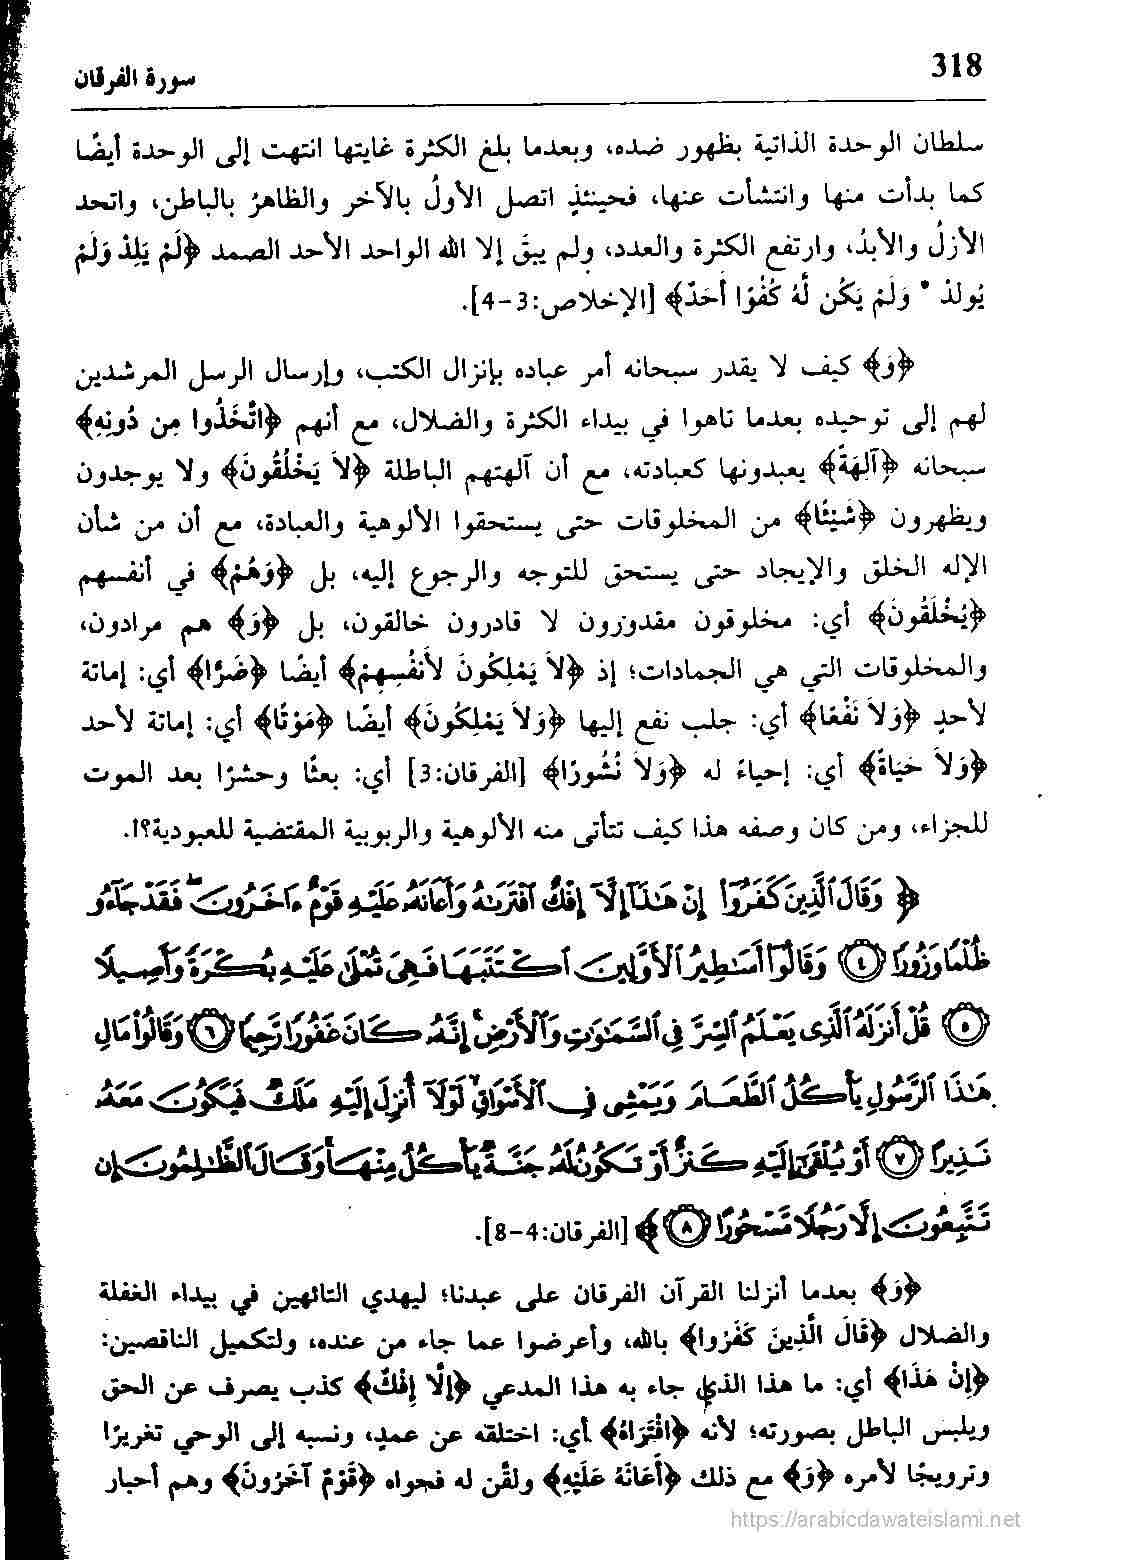 318
سورة الفرقان
سلطان الوحدة الذاتية بظهور ضده، وبعدما بلغ الكثرة غايتها انتهت إلى الوحدة أيضًا
كما بدأت منها وانتشأت عنها، فحينئذٍ اتصل الأولُ بالآخر والظاهرُ بالباطن، واتحد
الأزلُ والأبدُ، وارتفع الكثرة والعدد، ولم يبقَ إلا الله الواحد الأحد الصمد ﴿لَمْ يَلِدْ وَلَمْ
يُولَدْ * وَلَمْ يَكُن لَّهُ كُفُوًا أَحَدٌ﴾ [الإخلاص:3-4].
﴿وَ﴾ كيف لا يقدر سبحانه أمر عباده بإنزال الكتب، وإرسال الرسل المرشدين
لهم إلى توحيده بعدما تاهوا في بيداء الكثرة والضلال، مع أنهم ﴿اتَّخَذُوا مِن دُونِهِ﴾
سبحانه ﴿آلِهَةً﴾ يعبدونها كعبادته، مع أن آلهتهم الباطلة ﴿لاَ يَخْلُقُونَ﴾ ولا يوجدون
ويظهرون ﴿شَيْئًا﴾ من المخلوقات حتى يستحقوا الألوهية والعبادة، مع أن من شأن
الإله الخلق والإيجاد حتى يستحق للتوجه والرجوع إليه، بل ﴿وَهُمْ﴾ في أنفسهم
﴿يُخْلَقُونَ﴾ أي: مخلوقون مقدورون لا قادرون خالقون، بل ﴿وَ﴾ هم مرادون،
والمخلوقات التي هي الجمادات؛ إذ ﴿لاَ يَمْلِكُونَ لأَنفُسِهِمْ﴾ أيضًا ﴿ضَرًّا﴾ أي: إماتة
لأحدٍ ﴿وَلاَ نَفْعًا﴾ أي: جلب نفع إليها ﴿وَلاَ يَمْلِكُونَ﴾ أيضًا ﴿مَوْتًا﴾ أي: إماتة لأحد
﴿وَلاَ حَيَاةً﴾ أي: إحياءً له ﴿وَلاَ نُشُورًا﴾ [الفرقان:3] أي: بعثًا وحشرًا بعد الموت
للجزاء، ومن كان وصفه هذا كيف تتأتى منه الألوهية والربوبية المقتضية للعبودية؟!.
﴿ وَقَالَ ٱلَّذِينَ كَفَرُوٓاْ إِنْ هَٰذَآ إِلَّآ إِفْكٌ ٱفْتَرَىٰهُ وَأَعَانَهُۥ عَلَيْهِ قَوْمٌ ءَاخَرُونَ ۖ فَقَدْ جَآءُو
ظُلْمًا وَزُورًا ۝٤ وَقَالُوٓاْ أَسَٰطِيرُ ٱلْأَوَّلِينَ ٱكْتَتَبَهَا فَهِىَ تُمْلَىٰ عَلَيْهِ بُكْرَةً وَأَصِيلًا
۝٥ قُلْ أَنزَلَهُ ٱلَّذِى يَعْلَمُ ٱلسِّرَّ فِى ٱلسَّمَٰوَٰتِ وَٱلْأَرْضِ ۚ إِنَّهُۥ كَانَ غَفُورًا رَّحِيمًا ۝٦ وَقَالُواْ مَالِ
هَٰذَا ٱلرَّسُولِ يَأْكُلُ ٱلطَّعَامَ وَيَمْشِى فِى ٱلْأَسْوَاقِ ۙ لَوْلَآ أُنزِلَ إِلَيْهِ مَلَكٌ فَيَكُونَ مَعَهُۥ
نَذِيرًا ۝٧ أَوْ يُلْقَىٰٓ إِلَيْهِ كَنزٌ أَوْ تَكُونُ لَهُۥ جَنَّةٌ يَأْكُلُ مِنْهَا ۚ وَقَالَ ٱلظَّٰلِمُونَ إِن
تَتَّبِعُونَ إِلَّا رَجُلًا مَّسْحُورًا ۝٨ ﴾ [الفرقان:4-8].
﴿وَ﴾ بعدما أنزلنا القرآن الفرقان على عبدنا؛ ليهدي التائهين في بيداء الغفلة
والضلال ﴿قَالَ الَّذِينَ كَفَرُوا﴾ بالله، وأعرضوا عما جاء من عنده، ولتكميل الناقصين:
﴿إِنْ هَذَا﴾ أي: ما هذا الذي جاء به هذا المدعي ﴿إِلَّا إِفْكٌ﴾ كذب يصرف عن الحق
ويلبس الباطل بصورته؛ لأنه ﴿افْتَرَاهُ﴾ أي: اختلقه عن عمدٍ، ونسبه إلى الوحي تغريرًا
وترويجًا لأمره ﴿وَ﴾ مع ذلك ﴿أَعَانَهُ عَلَيْهِ﴾ ولقَّن له فحواه ﴿قَوْمٌ آخَرُونَ﴾ وهم أحبار
https://arabicdawateislami.net